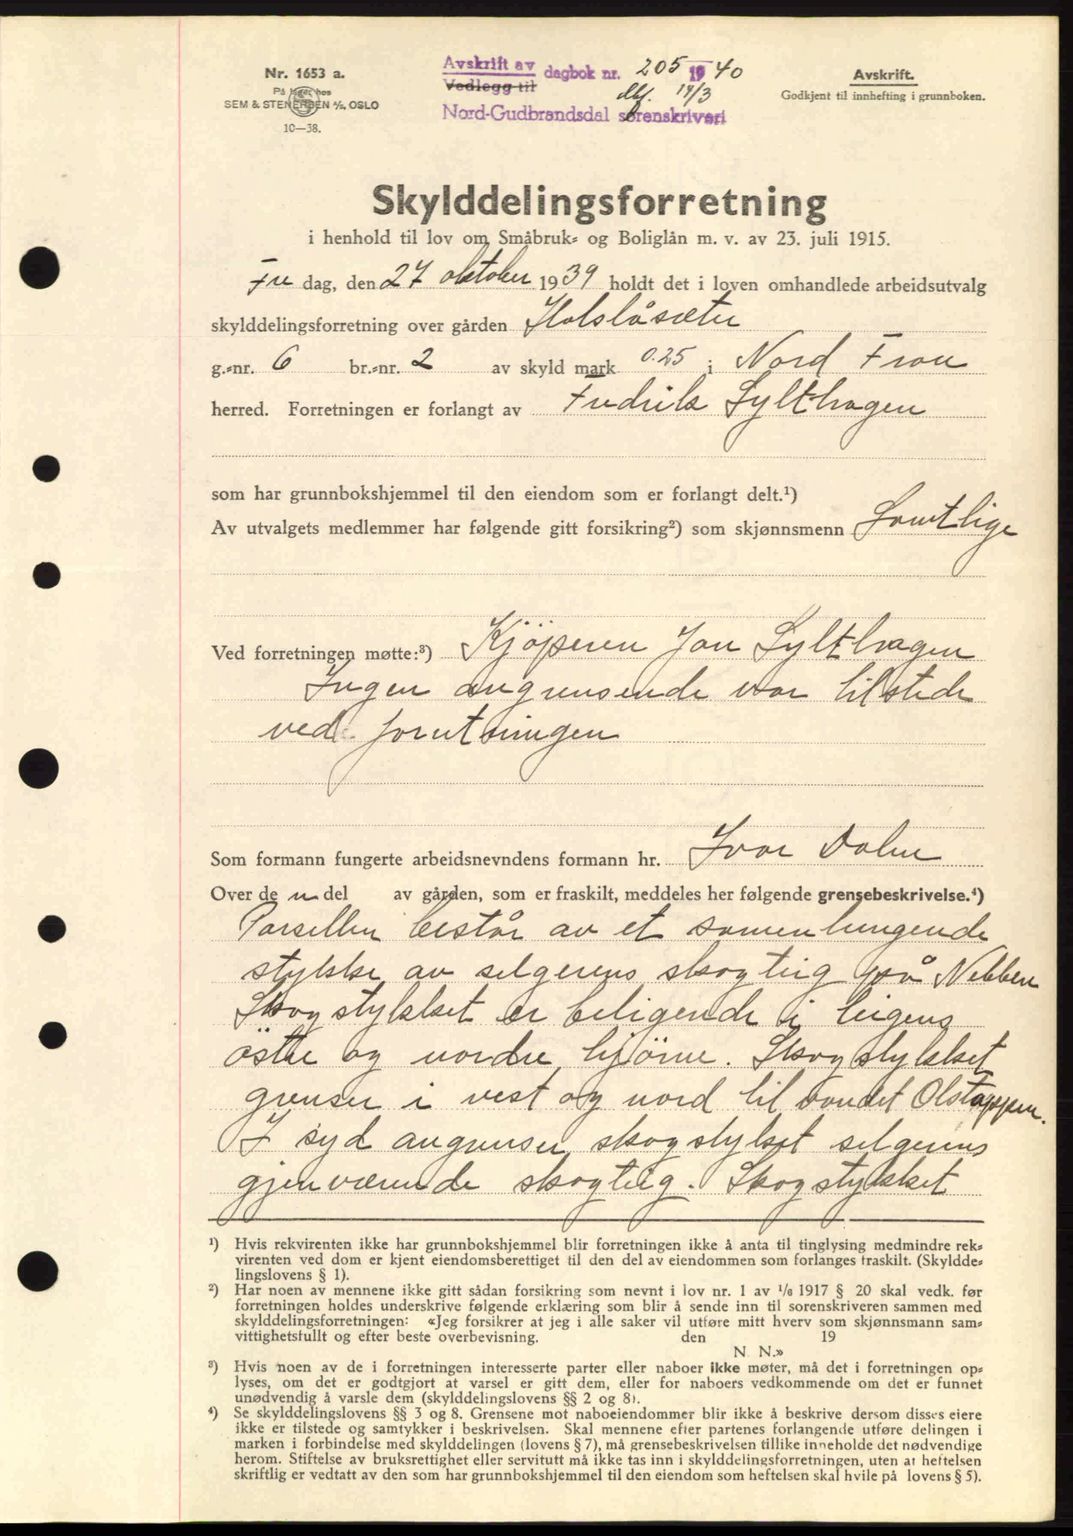 Nr. 1653 a.
På lager hos
SEM & STENERSEN A/S, OSLO
10—38.
Avskrift av dagbok nr. 205 1940
Vedlegg til
dbf. 14/3
Nord-Gudbrandsdal sorenskriveri
Avskrift.
Godkjent til innhefting i grunnboken.
Skylddelingsforretning
i henhold til lov om Småbruk- og Boliglån m. v. av 23. juli 1915.
Fre dag, den 27 oktober 1939 holdt det i loven omhandlede arbeidsutvalg
skylddelingsforretning over gården Holslåsæter
g.-nr. 6 br.-nr. 2 av skyld mark 0.25 i Nord Fron
herred. Forretningen er forlangt av Fredrik Sylthagen
som har grunnbokshjemmel til den eiendom som er forlangt delt.¹)
Av utvalgets medlemmer har følgende gitt forsikring²) som skjønnsmenn Samtlige
Ved forretningen møtte:³) Kjöperen Jon Sylthagen
Ingen angrensende var tilstede
ved forretningen
Som formann fungerte arbeidsnevndens formann hr. Ivar Dalen
Over de n del av gården, som er fraskilt, meddeles her følgende grensebeskrivelse.⁴)
Parsellen består av et samenhengende
stykke av selgerens skogteig på Nebben
Skogstykket er beligende i teigens
östre og nordre hjörne. Skogstykket
grenser i vest og nord til vandet Olstappen.
I syd angrenser skogstykket selgerens
gjenværende skogteig. Skogstykket
¹) Hvis rekvirenten ikke har grunnbokshjemmel blir forretningen ikke å anta til tinglysing medmindre rek-
virenten ved dom er kjent eiendomsberettiget til den del av eiendommen som forlanges fraskilt. (Skyldde-
lingslovens § 1).
²) Har noen av mennene ikke gitt sådan forsikring som nevnt i lov nr. 1 av 1/6 1917 § 20 skal vedk. før
forretningen holdes underskrive følgende erklæring som blir å sende inn til sorenskriveren sammen med
skylddelingsforretningen: «Jeg forsikrer at jeg i alle saker vil utføre mitt hverv som skjønnsmann sam-
vittighetsfullt og efter beste overbevisning. den 19
N. N.»
³) Hvis noen av de i forretningen interesserte parter eller naboer ikke møter, må det i forretningen op-
lyses, om det er godtgjort at varsel er gitt dem, eller for naboers vedkommende om det er funnet
unødvendig å varsle dem (skylddelingslovens §§ 2 og 8).
⁴) Se skylddelingslovens §§ 3 og 8. Grensene mot naboeiendommer blir ikke å beskrive dersom disses eiere
ikke er tilstede og samtykker i beskrivelsen. Skal mennene efter partenes forlangende utføre delingen i
marken i forbindelse med skylddelingen (lovens § 7), må grensebeskrivelsen tillike inneholde det nødvendige
herom. Stiftelse av bruksrettighet eller servitutt må ikke tas inn i skylddelingsforretningen, uten at heftelsen
skriftlig er vedtatt av den som har grunnbokshjemmel til den eiendom som heftelsen skal hvile på lovens § 5).